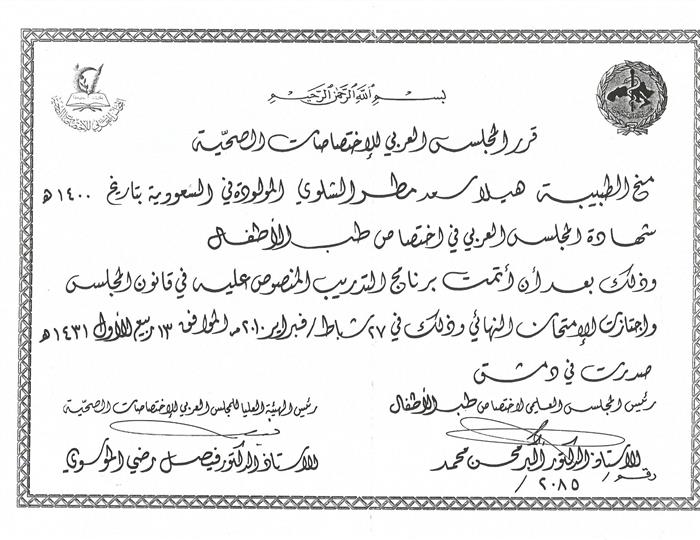 بسم الله الرحمن الرحيم
قرر المجلس العربي للاختصاصات الصحيّة
منح الطبيبة هيلا سعد مطر الشلوي المولودة في السعودية بتاريخ ١٤٠٠ هـ
شهادة المجلس العربي في اختصاص طب الأطفال
وذلك بعد أن أتمت برنامج التدريب المنصوص عليه في قانون المجلس
واجتازت الإمتحان النهائي وذلك في ٢٧ شباط/فبراير ٢٠١٠ م الموافق ١٣ ربيع الأول ١٤٣١ هـ
صدرت في دمشق
رئيس المجلس العلمي لاختصاص طب الأطفال
رئيس الهيئة العليا للمجلس العربي للاختصاصات الصحيّة
الأستاذ الدكتور أكبر محسن محمد
الأستاذ الدكتور فيصل رضي الموسوي
رقم / ٢٠٨٥